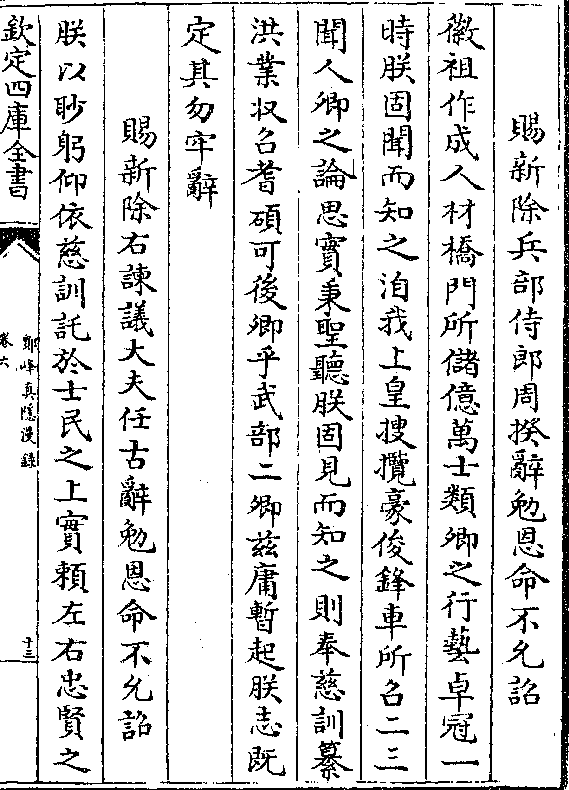 賜新除兵部侍郎周揆辭勉恩命不允詔
徽祖作成人材橋門所儲億萬士類卿之行藝卓冠一
時朕固聞而知之洎我上皇搜攬豪俊鋒車所召二三
聞人卿之論思實秉聖聽朕固見而知之則奉慈訓纂
洪業収召耆碩可後卿乎武部二卿兹庸暫起朕志既
定其勿牢辭
賜新除右諫議大夫任古辭勉恩命不允詔
朕以眇躬仰依慈訓託於士民之上實賴左右忠賢之
欽定四庫全書
鄮峰真隱漫錄
卷六
十三